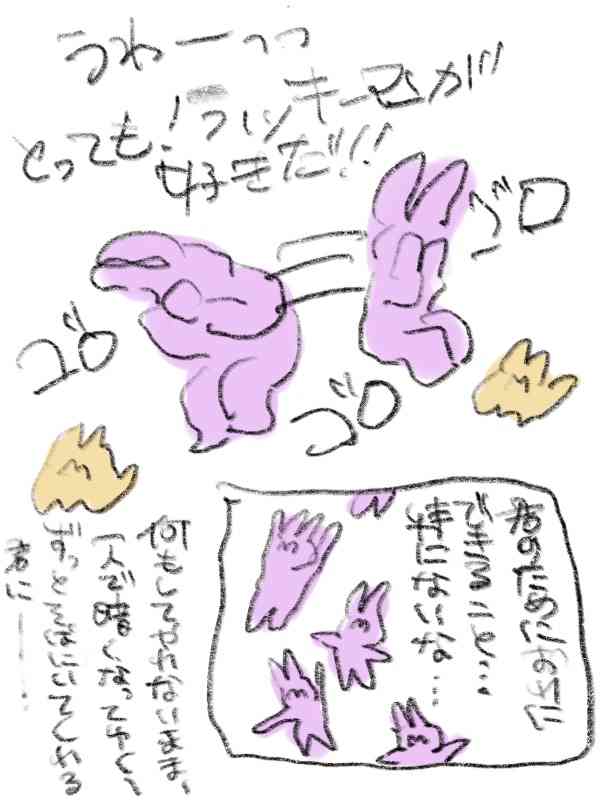 うわーっっ
とっても!クッキーマンが
好きだ!!
ゴロ
ゴロ
ゴロ
君のためにおれに
できること…
特にないな…
何もしてやれないまま、
一人で暗くなってゆく、
ずっとそばにいてくれる
君に